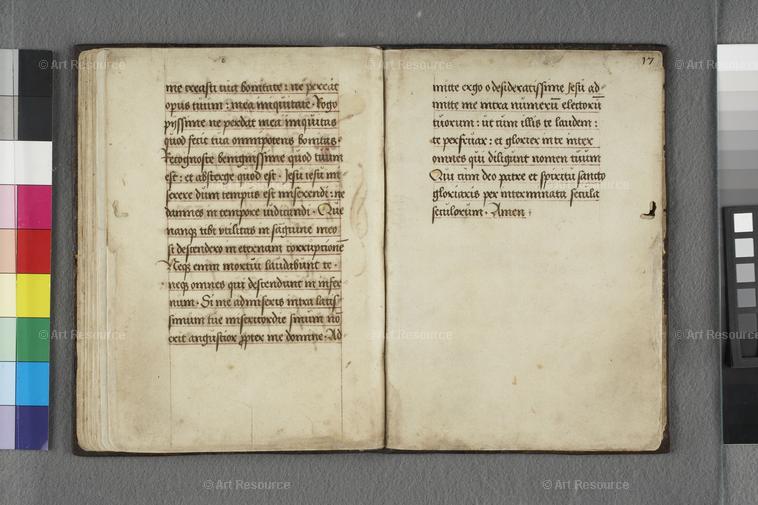 me creasti tua bonitate: ne pereat
opus tuum: mea iniquitate. Rogo
pyssime ne perdat mea iniquitas
quod fecit tua omnipotens bonitas.
Recognosce benignissime quod tuum
est: et absterge quod est. Jesu iesu mi
serere dum tempus est miserendi: ne
damnes in tempore iudicandi. Que
nanque tibi utilitas in sanguine meo
si descendero in eternam corruptionē
Neque enim mortui laudabunt te.
neque omnes qui descendunt in infer
num. Si me admiseris intra latis
simum tue misericordie sinum nō
erit angustior propter me domine. Ad
17
mitte ergo o desideratissime Jesu ad
mitte me intra numerū electorū
tuorum: ut cum illis te laudem:
te perfruar: et glorier in te inter
omnes qui diligunt nomen tuum
Qui cum deo patre et spiritu sancto
gloriaris per interminata secula
seculorum. Amen
© Art Resource
© Art Resource
© Art Resource
© Art Resource
© Art Resource
© Art Resource
© Art Resource
© Art Resource
© Art Resource
© Art Resource